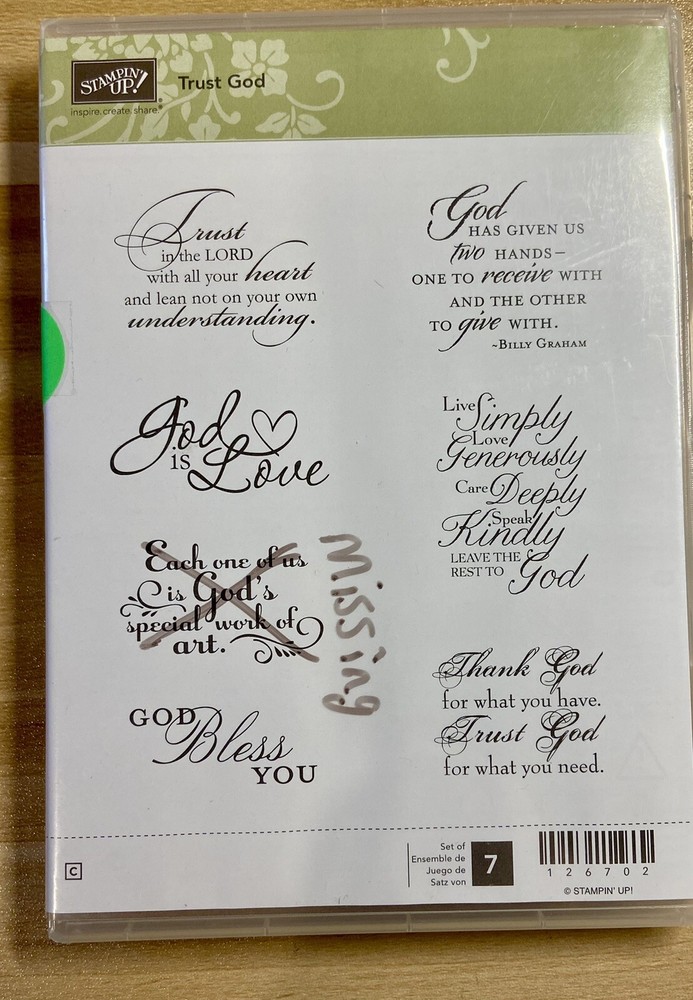 STAMPIN' UP!
inspire. create. share.
Trust God
Trust
in the LORD
with all your heart
and lean not on your own
understanding.
God
HAS GIVEN US
two HANDS–
ONE TO receive WITH
AND THE OTHER
TO give WITH.
~BILLY GRAHAM
God
is Love
Live Simply
Love
Generously
Care Deeply
Speak
Kindly
LEAVE THE
REST TO God
Each one of us
is God's
special work of
art.
Missing
GOD
Bless
YOU
Thank God
for what you have.
Trust God
for what you need.
C
Set of
Ensemble de
Juego de
Satz von
7
126702
© STAMPIN' UP!